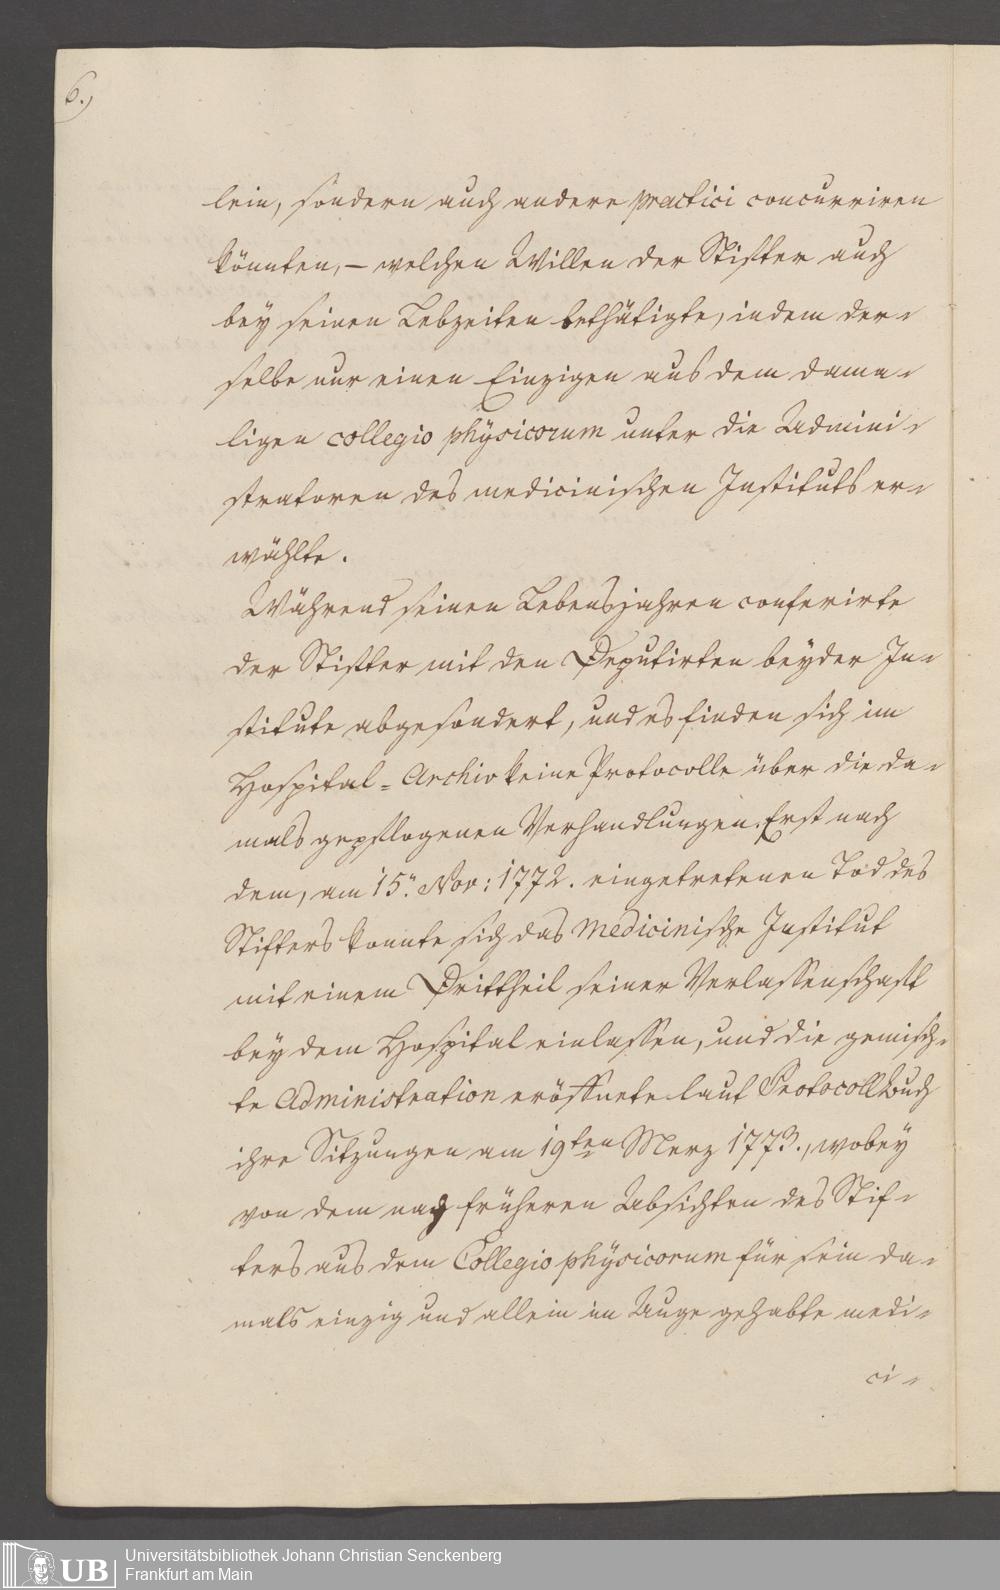 6.)
lein, sondern auch andere practici concurriren
könnten, – welchen Willen der Stifter auch
bey seinen Lebzeiten bethätigte, indem der-
selbe nur einen Einzigen aus dem dama-
ligen collegio physicorum unter die Admini-
stratoren des medicinischen Instituts er-
wählte.
Während seinen Lebensjahren conferirte
der Stifter mit den Deputirten beyder In-
stitute abgesondert, und es finden sich im
Hospital-Archiv keine Protocolle über die da-
mals gepflogenen Verhandlungen. Erst nach
dem, am 15n Nov: 1772. eingetretenen Tod des
Stifters konnte sich das medicinische Institut
mit einem Drittheil seiner Verlassenschaft
bey dem Hospital einlassen, und die gemisch-
te Administration eröffnete laut Protocollbuch
ihre Sitzungen am 19ten Merz 1773., wobey
von dem nach früheren Absichten des Stif-
ters aus dem Collegio physicorum für sein da-
mals einzig und allein im Auge gehabte medi-
ci-
UB
Universitätsbibliothek Johann Christian Senckenberg
Frankfurt am Main